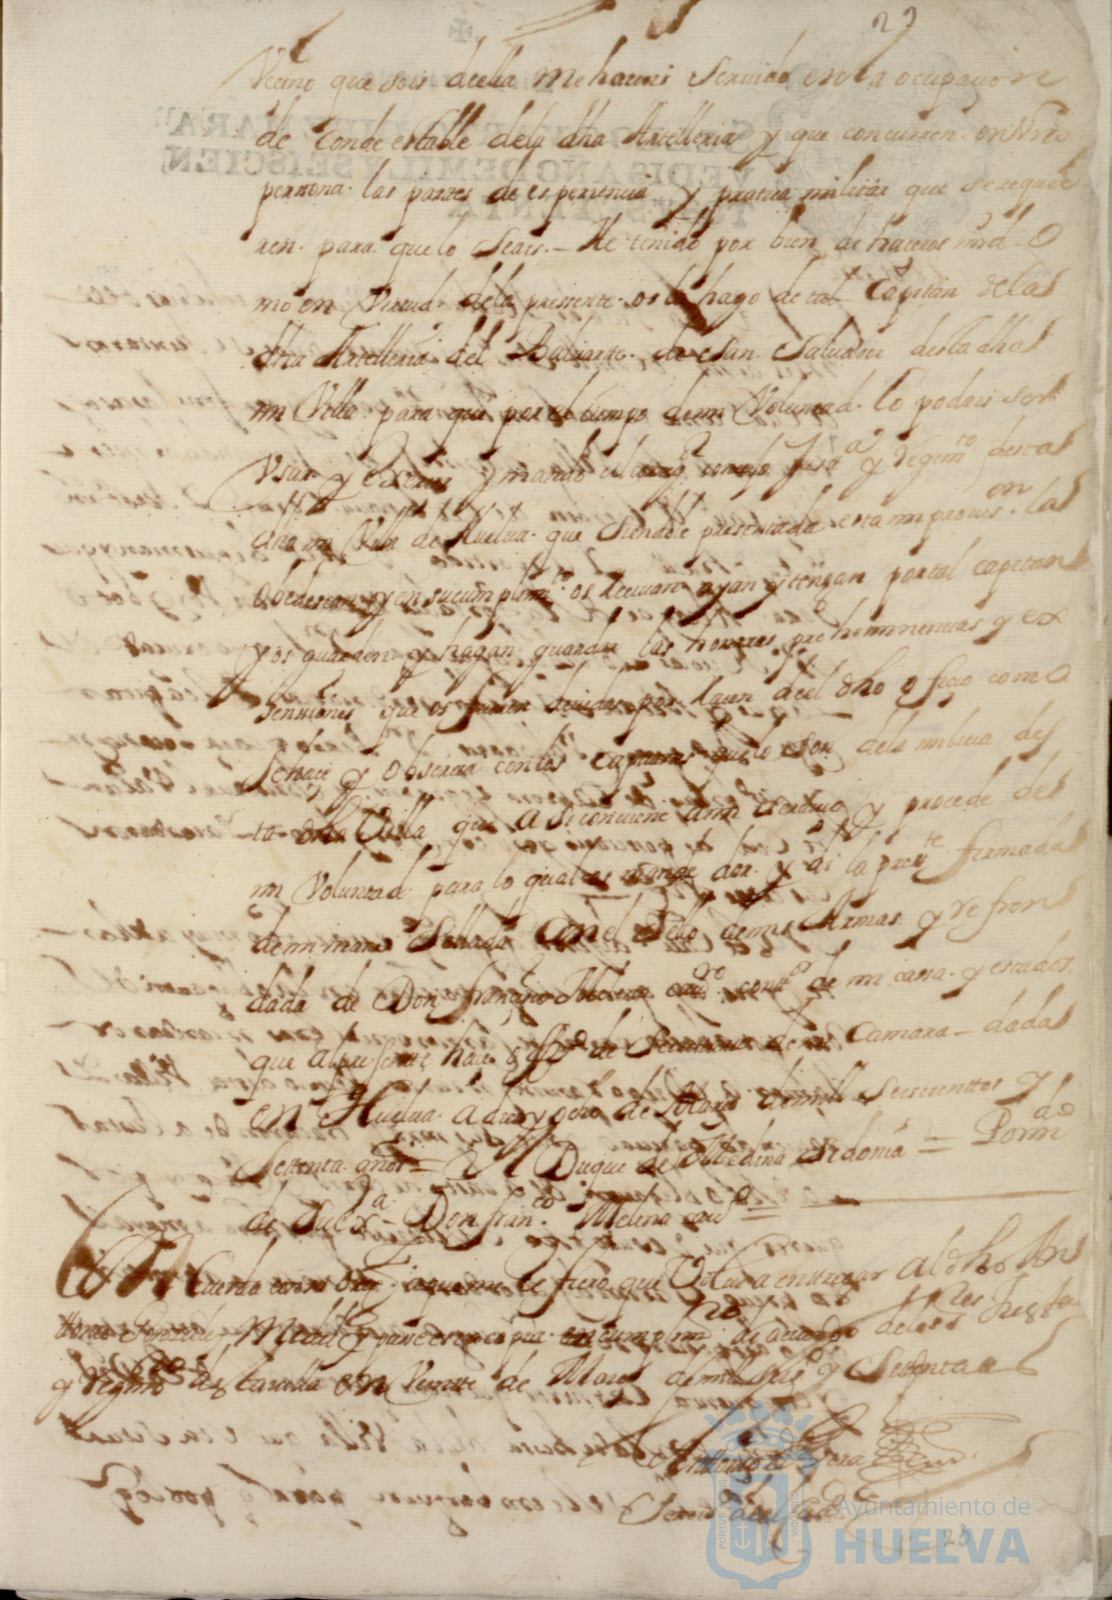 29
Vecino que sois de ella me haveis servido en la ocupacion
de Condestable de la dha Artelleria y que concurren en Vra
persona las partes de esperiencia y pratica militar que se requie
ren para que lo seais. He tenido por bien de haceros mrd co
mo en Virtud de la presente os la hago de tal Capitan de la
dha Artelleria del Baluarte de San Salvador de la dha
mi Villa para que por el tiempo de mi Voluntad lo podais ser
Vsar y exercer y mando al concejo Justa y Regimto de la
dha mi Villa de Huelva que siendole presentada esta mi provis.on la
Obedescan y en su cumplimto os Reciuan ayan y tengan por tal capitan
y os guarden y hagan guardar las honrras preheminencias y ex
sempciones que os fueren devidas por Raçon del dho oficio como
se hace y observa con los capitanes que lo son de la milicia des
ta dha Villa que asi conviene a mi servicio y procede de
mi Voluntad para lo qual os mande dar y di la preste firmada
de mi mano Sellada con el Sello de mis Armas y refren
dada de Don Francisco Molina contor de mi casa y estados
que al presente hace offo de Secretario de mi Camara dada
en Huelva a diez y ocho de Março de mill Seiscienttos y
Settenta años = El Duque de Medina Sidonia = Por mdo
de Su Exa Don Franco Molina
Concuerda con su orijl a que me refiero que Volui a entregar al dho An
tonio y para que conste en cumplimto de acuerdo de los Sres Justa
y Regimto desta villa en Veinte de Março de mill Seisos y Settenta as
Antonio de
Ssno del Cabdo
Ayuntamiento de
HUELVA
29